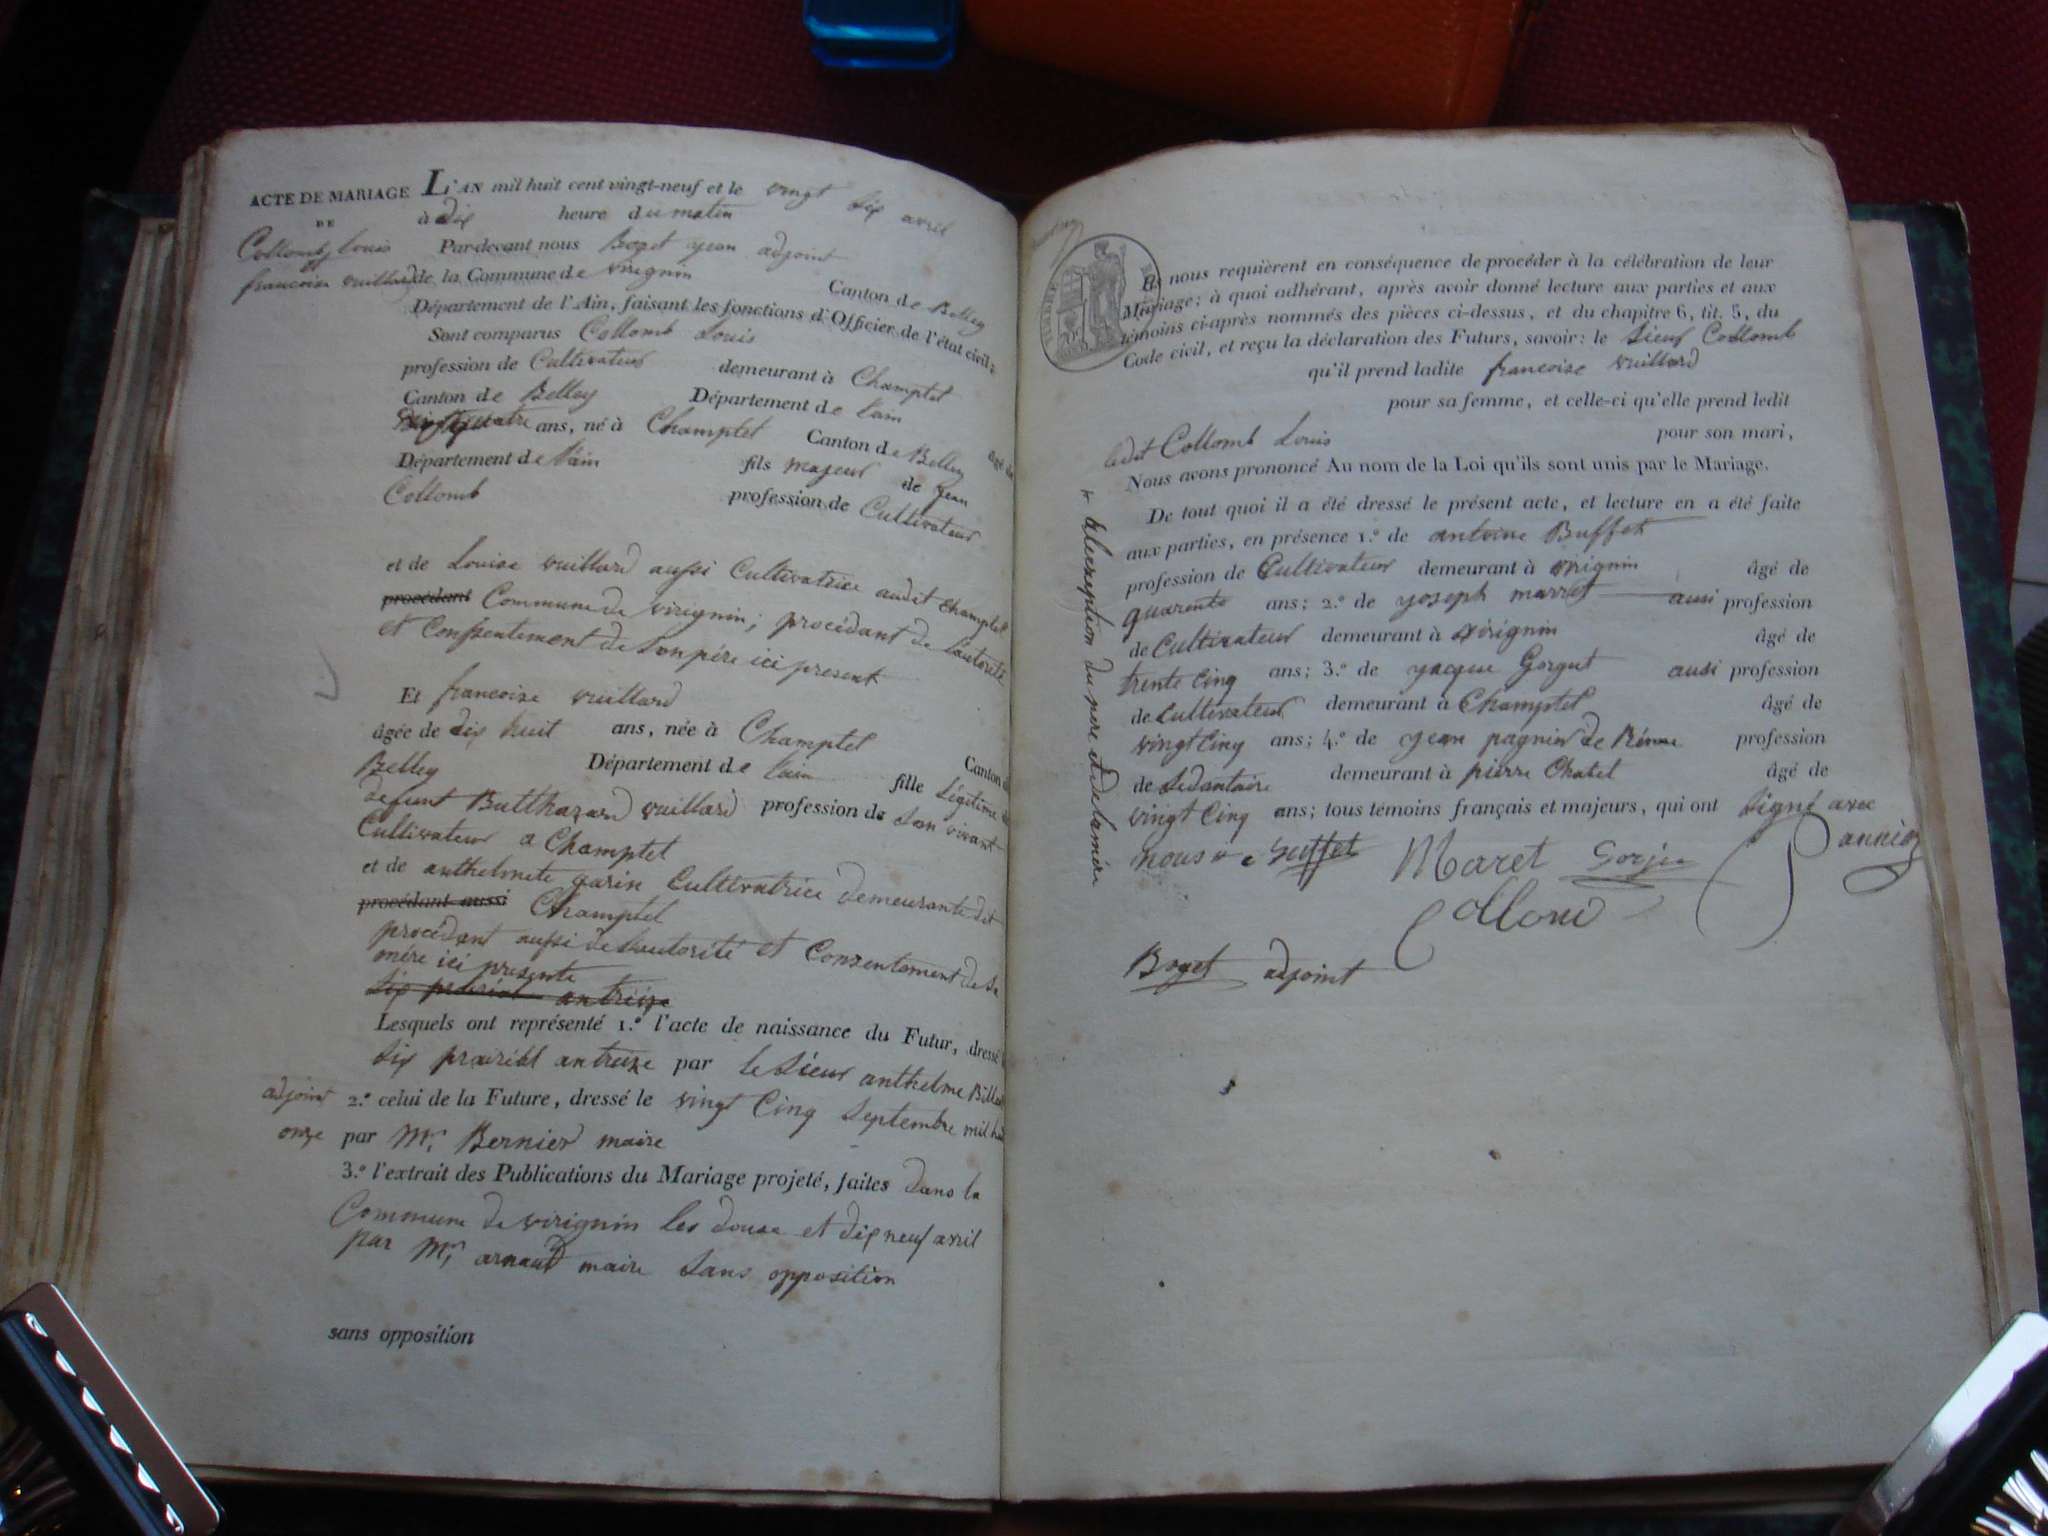 ACTE DE MARIAGE
DE
Collomb Louis
et
francoise vuillard
L'AN mil huit cent vingt-neuf et le vingt six avril
à dix heure du matin
Par-devant nous Boget jean adjoint
de la Commune de virignin Canton de Belley
Département de l'Ain, faisant les fonctions d'Officier de l'état civil;
Sont comparus Collomb Louis
profession de Cultivateur demeurant à Champtel
Canton de Belley Département de lain âgé de
vingt quatre ans, né à Champtel Canton de Belley
Département de l'ain fils majeur de jean
Collomb profession de Cultivateur
et de Louise vuillard aussi Cultivatrice audit Champtel
procédant Commune de virignin; procédant de l'autorité
et Conssentement de son père ici present
Et francoise vuillard
âgée de dix huit ans, née à Champtel Canton de
Belley Département de lain fille Légitime de
defunt Balthazard vuillard profession de son vivant
Cultivateur a Champtel
et de anthelmete garin Cultivatrice demeurante dit
procédant aussi Champtel
procédant aussi de l'autorité et Consentement de sa
mère ici presente
six prairial an treize
Lesquels ont représenté 1.° l'acte de naissance du Futur, dressé
six prairial an treize par le sieur anthelme
adjoint 2.° celui de la Future, dressé le vingt Cinq septembre mil huit
onze par Mr. Bernier maire
3.° l'extrait des Publications du Mariage projeté, faites dans la
Commune de virignin les douze et dix neuf avril
par Mr. arnaud maire sans opposition
sans opposition
TIMBRE
Ils nous requièrent en conséquence de procéder à la célébration de leur
Mariage; à quoi adhérant, après avoir donné lecture aux parties et aux
témoins ci-après nommés des pièces ci-dessus, et du chapitre 6, tit. 5, du
Code civil, et reçu la déclaration des Futurs, savoir: le sieur Collomb
qu'il prend ladite francoise vuillard
pour sa femme, et celle-ci qu'elle prend ledit
Collomb Louis pour son mari,
Nous avons prononcé Au nom de la Loi qu'ils sont unis par le Mariage.
De tout quoi il a été dressé le présent acte, et lecture en a été faite
aux parties, en présence 1.° de antoine Buffet
profession de Cultivateur demeurant à virignin âgé de
quarente ans; 2.° de joseph marret aussi profession
de Cultivateur demeurant à virignin âgé de
trente Cinq ans; 3.° de jacque Gorgut aussi profession
de Cultivateur demeurant à Champtel âgé de
vingt Cinq ans; 4.° de jean pagnier de profession
de sedantaire demeurant à pierre Chatel âgé de
vingt Cinq ans; tous témoins français et majeurs, qui ont signé avec
nous
+ à l'exception du père et de la mère
Buffet Maret
Collomb
Boget adjoint